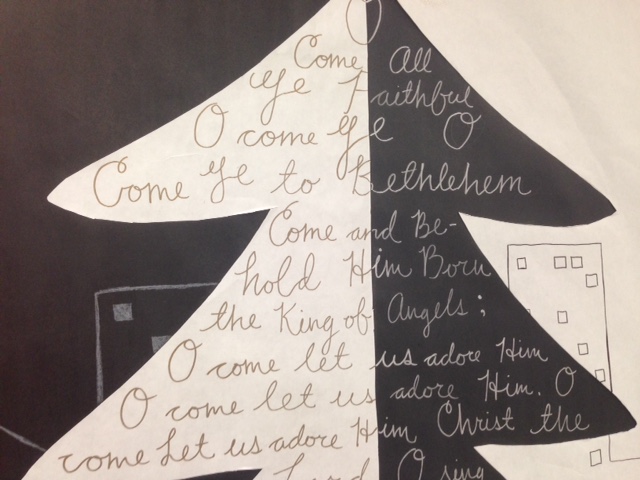 O
Come All
Ye Faithful
O come Ye O
Come Ye to Bethlehem
Come and Be-
hold Him Born
the King of Angels;
O come let us adore Him
O come let us adore Him. O
come let us adore Him Christ the
Lord O sing